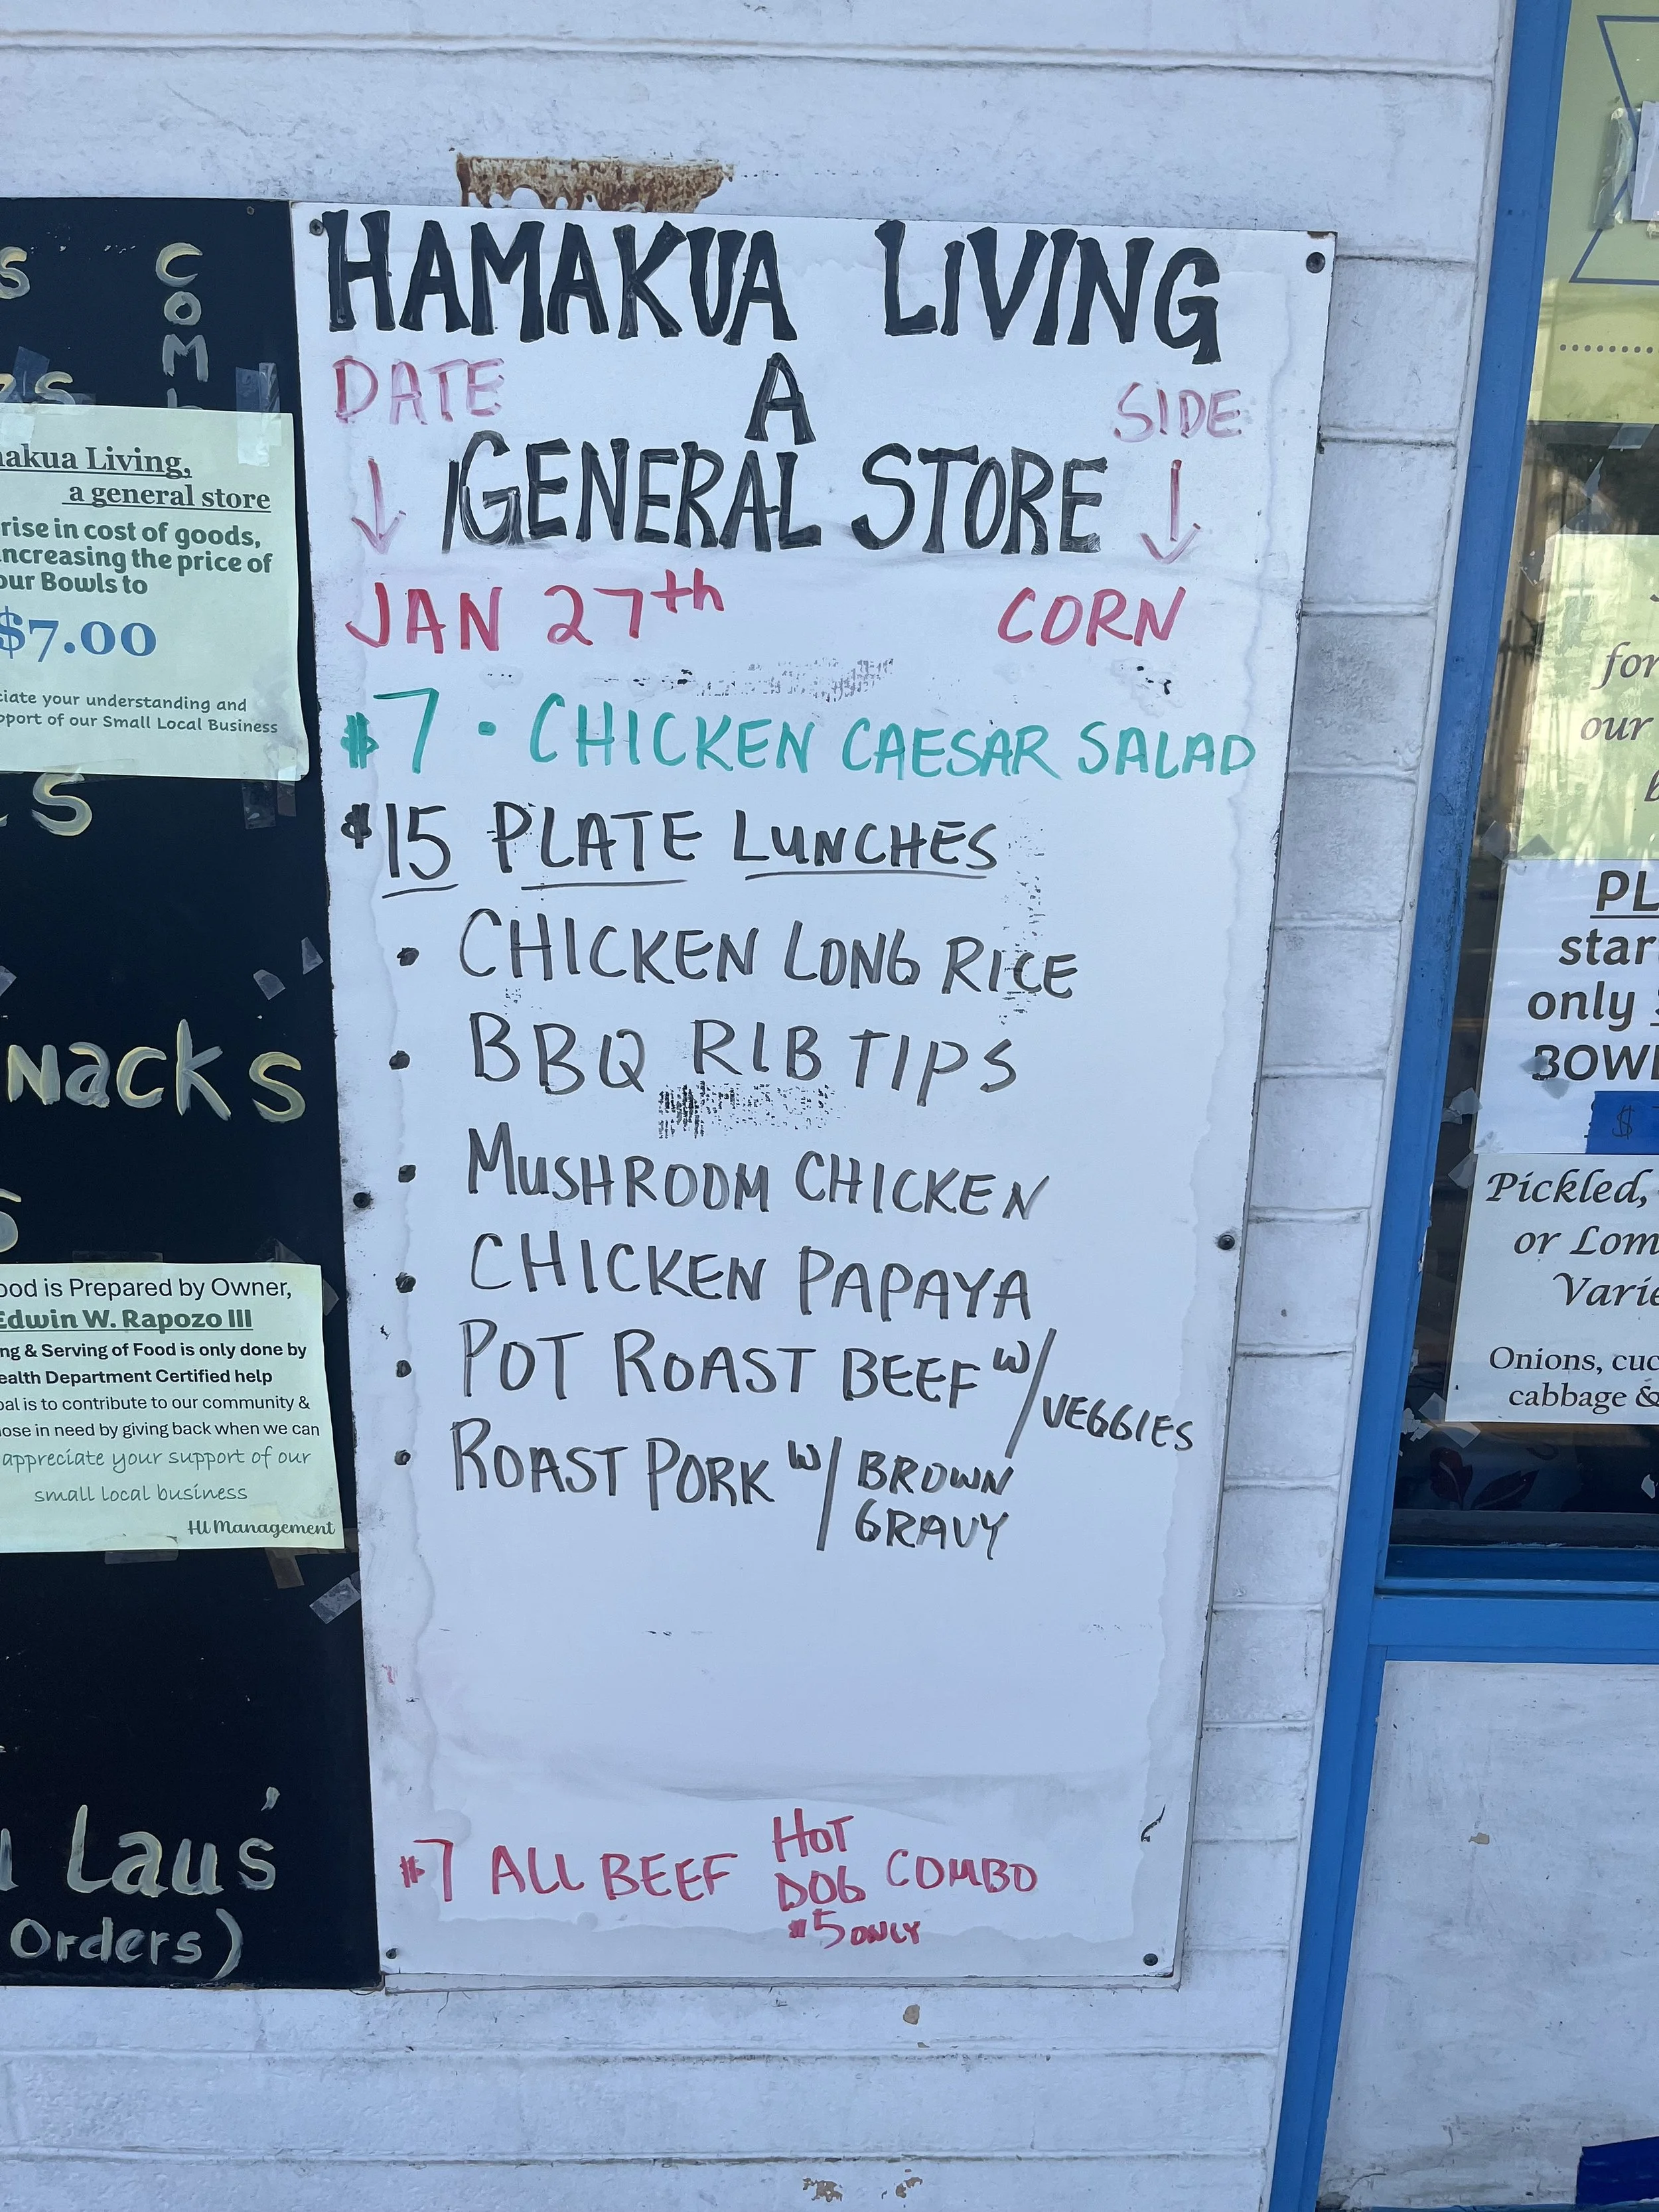 HAMAKUA LIVING
DATE A SIDE
GENERAL STORE
JAN 27th CORN
$7 · CHICKEN CAESAR SALAD
$15 PLATE LUNCHES
• CHICKEN LONG RICE
• BBQ RIB TIPS
• MUSHROOM CHICKEN
• CHICKEN PAPAYA
• POT ROAST BEEF W/ VEGGIES
• ROAST PORK W/ BROWN
GRAVY
$7 ALL BEEF HOT DOG COMBO
$5 ONLY
S
COM
akua Living,
a general store
rise in cost of goods,
increasing the price of
our Bowls to
$7.00
ciate your understanding and
pport of our Small Local Business
S
nacks
ood is Prepared by Owner,
Edwin W. Rapozo III
ng & Serving of Food is only done by
ealth Department Certified help
oal is to contribute to our community &
hose in need by giving back when we can
appreciate your support of our
small local business
HL Management
Laus'
Orders)
for
our
PL
star
only
BOWL
$
Pickled,
or Lom
Varie
Onions, cuc
cabbage &